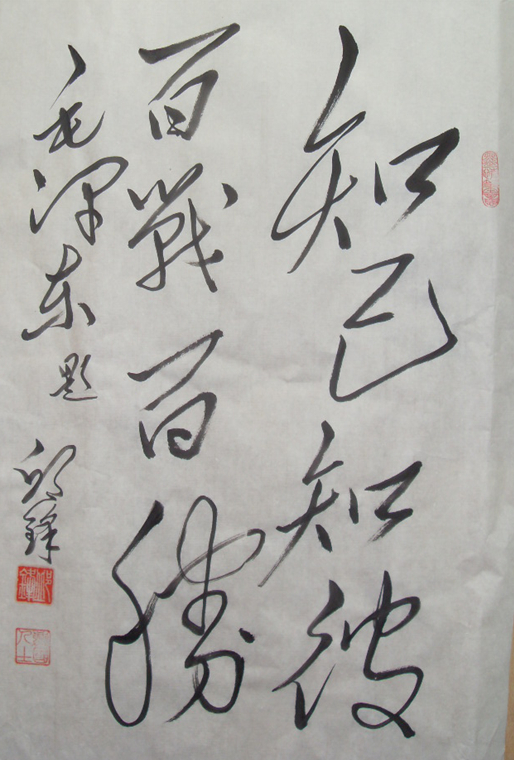 知己知彼
百戰百勝
毛泽东题
邱锋